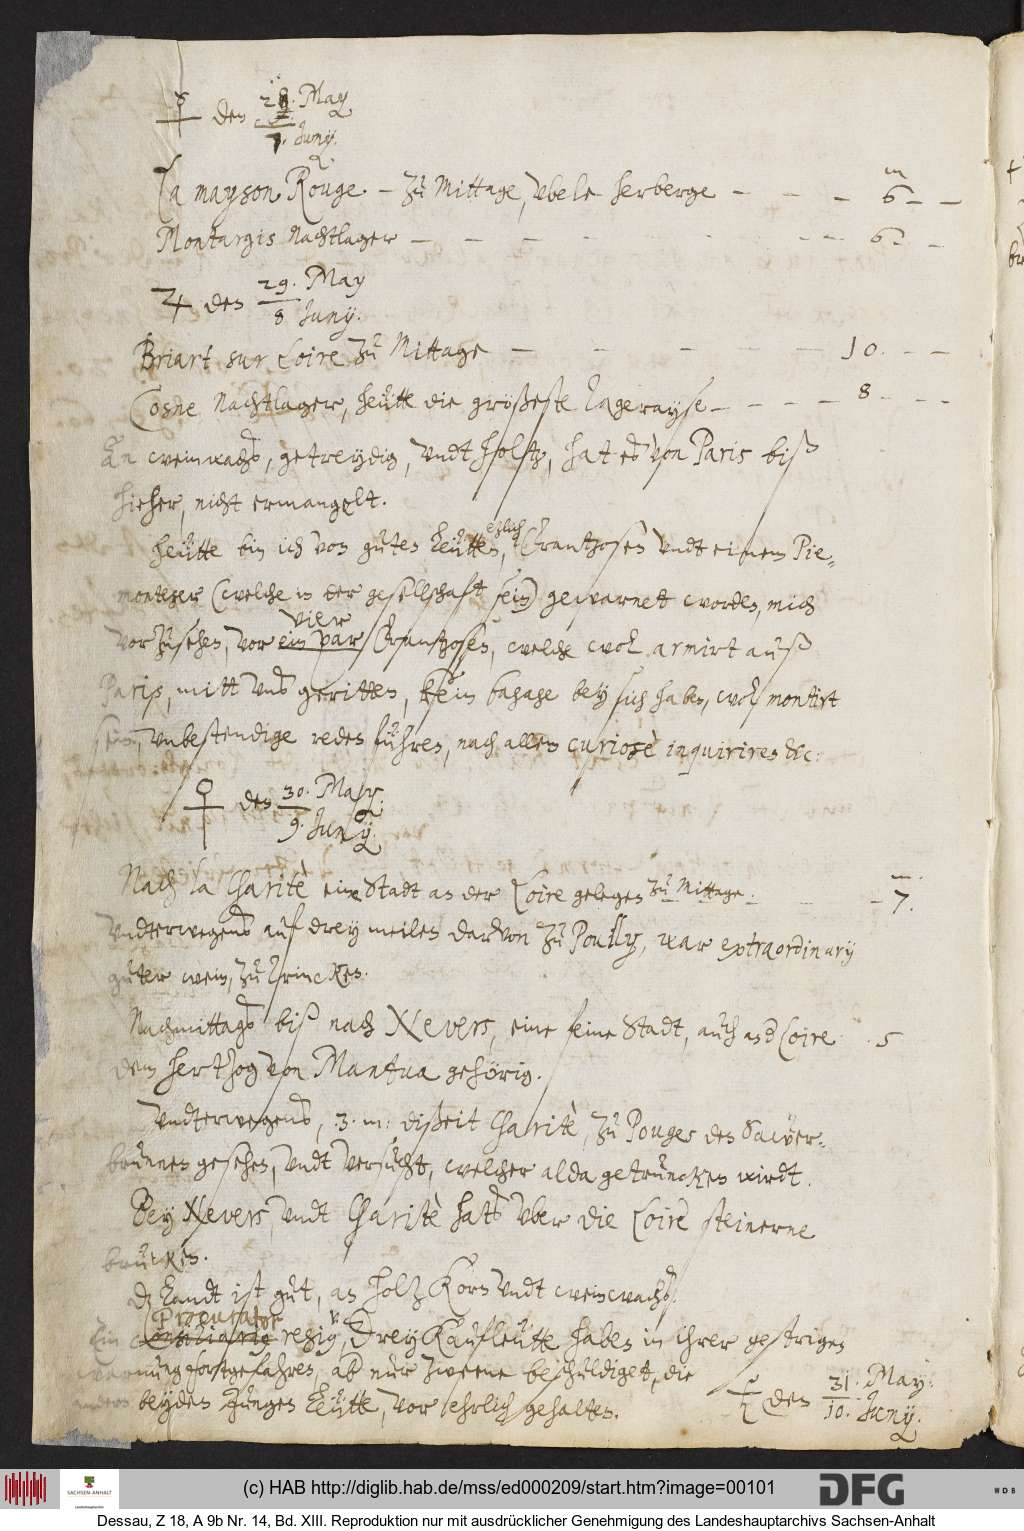 ☿ den 28. May
7. Juny.
La mayson Rouge. – zu Mittage, vbele herberge – – – – 6 – –
m
Montargis Nachtlager – – – – – – – 6 –
♃ den 29. May
8 Juny.
Briart sur Loire zu Mittage – – – – – 10. – –
Cosne Nachtlager, heütte die größeste Tagerayse – – – – 8 – – –
An weinwachß, getreydig, vndt holtz, hat eß von Paris biß
hieher, nicht ermangelt.
etzlich
heütte bin ich von guten Leütten, Frantzosen vndt einem Pie-
monteser (welche in der gesellschaft sein) gewarnet worden, mich
vier
vorzusehen, vor ein par Frantzosen, welche wol armirt auß
Pariß, mitt vnß geritten, kein bagage bey sich haben, wol montirt
sein, vnbestendige reden führen, nach allem curiosè inquiriren etc:
♀ den 30. May.
9. Juny.
Nach la Charitè eine Stadt an der Loire gelegen zu Mittage. – 7.
m
vndterwegens auf drey meilen darvon zu Pouilly, war extraordinarij
guter wein, zu trincken.
Nachmittagß biß nach Nevers, eine feine Stadt, auch an d Loire 5
dem hertzog von Mantua gehörig.
vndterwegens, 3. m: dißeit Charitè, zu Pouges den Sawer-
brunnen gesehen, vndt versucht, welcher alda getruncken wirdt.
Bey Nevers, vndt Charitè hatß vber die Loire steinerne
brücken.
dz Landt ist gut, an holtz Korn vndt weinwachß.
Procurator
Ein regiu, Drey Kaufleütte haben in ihrer gestrigen
warnung fortgefahren, ab nur zweene beschuldiget, die
andern beyden Jungen Leütte, vor ehrlich gehalten.
♄ den 31. May.
10. Juny.
(c) HAB http://diglib.hab.de/mss/ed000209/start.htm?image=00101
SACHSEN-ANHALT
Landeshauptarchiv
DFG
WDB
Dessau, Z 18, A 9b Nr. 14, Bd. XIII. Reproduktion nur mit ausdrücklicher Genehmigung des Landeshauptarchivs Sachsen-Anhalt